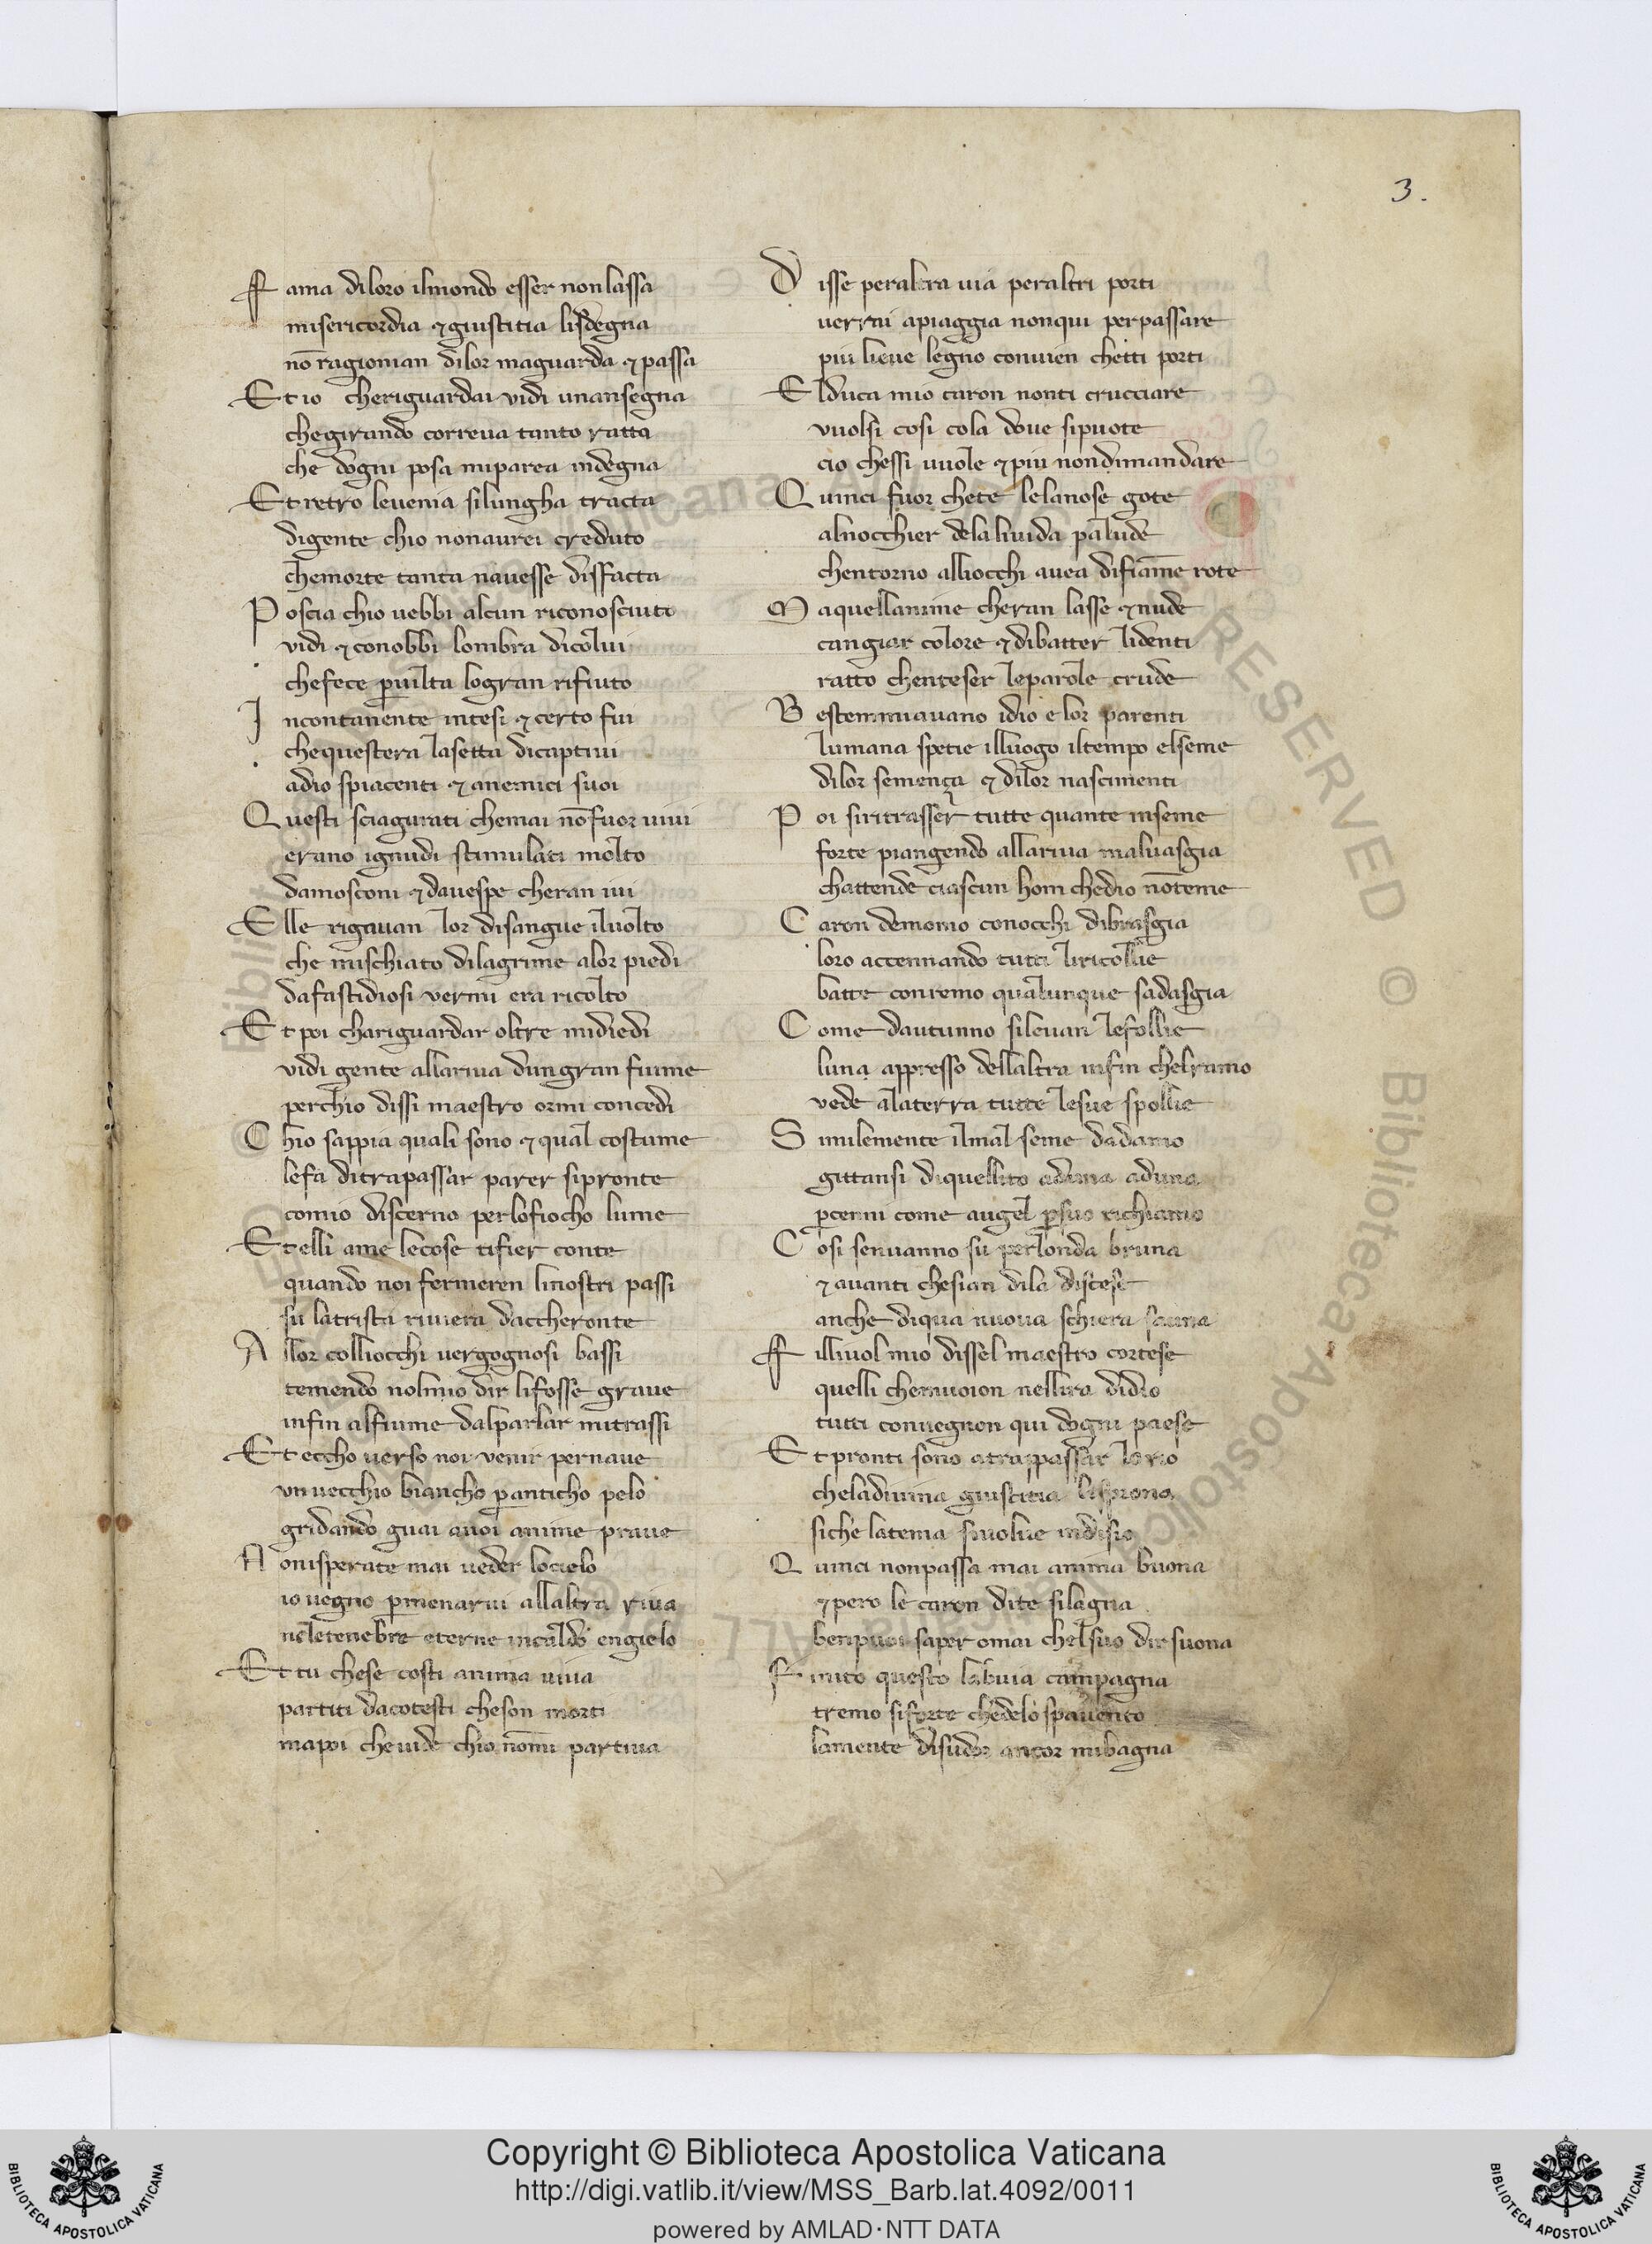 3.
Fama diloro ilmondo esser nonlassa
misericordia ⁊ giustitia lisdegna
nō ragionian dilor maguarda ⁊ passa
Et io cheriguardai vidi unansegna
chegirando correua tanto ratta
che dogni posa miparea indegna
Et retro leuenia silungha tracta
digente chio nonaurei creduto
chemorte tanta nauesse disfacta
Poscia chio uebbi alcun riconosciuto
vidi ⁊ conobbi lombra dicolui
chefece ꝑuilta logran rifiuto
Incontanente intesi ⁊ certo fui
chequestera lasetta dicaptiui
adio spiacenti ⁊ anemici suoi
Questi sciagurati chemai nō fuor uiui
erano ignudi stimulati molto
damosconi ⁊ dauespe cheran iui
Elle rigauan lor disangue iluolto
che mischiato dilagrime alor piedi
dafastidiosi vermi era ricolto
Et poi chariguardar oltre midiedi
vidi gente allariua dungran fiume
perchio dissi maestro ormi concedi
Chio sappia quali sono ⁊ qual costume
lefa ditrapassar parer sipronte
comio discerno perlofiocho lume
Et elli ame lecose tifier conte
quando noi fermeren linostri passi
su latrista riuiera daccheronte
Allor colliocchi uergognosi bassi
temendo nolmio dir lifosse graue
infin alfiume dalparlar mitrassi
Et eccho uerso noi venir pernaue
vn uecchio biancho ꝑanticho pelo
gridando guai auoi anime praue
Nonisperate mai ueder locielo
io uegno ꝑmenarui allaltra riua
neletenebre eterne incaldo engielo
Et tu chese costi anima uiua
partiti dacotesti cheson morti
mapoi cheuide chio nōmi partiua
Disse peraltra uia peraltri porti
uerrai apiaggia nonqui perpassare
piu lieue legno conuien chetti porti
Elduca mio caron nonti crucciare
vuolsi cosi cola doue sipuote
cio chessi uuole ⁊ piu nondimandare
Quinci fuor chete lelanose gote
alnocchier delaliuida palude
chentorno alliocchi auea difiāme rote
Maquellanime cheran lasse ⁊ nude
cangiar colore ⁊ dibatter lidenti
ratto chenteser leparole crude
Bestemmiauano idio elor parenti
lumana spetie illuogo iltempo elseme
dilor semença ⁊ dilor nascimenti
Poi siritrasser tutte quante inseme
forte piangendo allariua maluasgia
chattende ciascun hom chedio nōteme
Caron demonio conocchi dibrasgia
loro accennando tutti liricollie
batte conremo qualunque sadasgia
Come dautunno sileuan lefollie
luna appresso dellaltra infin chelramo
vede alaterra tutte lesue spollie
Similemente ilmal seme dadamo
gittansi diquellito adima aduna
ꝑcenni come augel ꝑsuo richiamo
Cosi senuanno su perlonda bruna
⁊ auanti chesian dila discese
anche diqua nuoua schiera sauna
Filliuol mio dissel maestro cortese
quelli chemuoion nellira didio
tutti conuegnon qui dogni paese
Et pronti sono atrappassar lorio
cheladiuina giustitia lisprona
siche latema siuolue indisio
Quinci nonpassa mai anima buona
⁊ pero se caron dite silagna
benpuoi saper omai chelsuo dir suona
Finito questo labuia campagna
tremo siforte chedelo spauento
lamente disudor ancor mibagna
Copyright © Biblioteca Apostolica Vaticana
http://digi.vatlib.it/view/MSS_Barb.lat.4092/0011
powered by AMLAD·NTT DATA
BIBLIOTECA APOSTOLICA VATICANA
BIBLIOTECA APOSTOLICA VATICANA